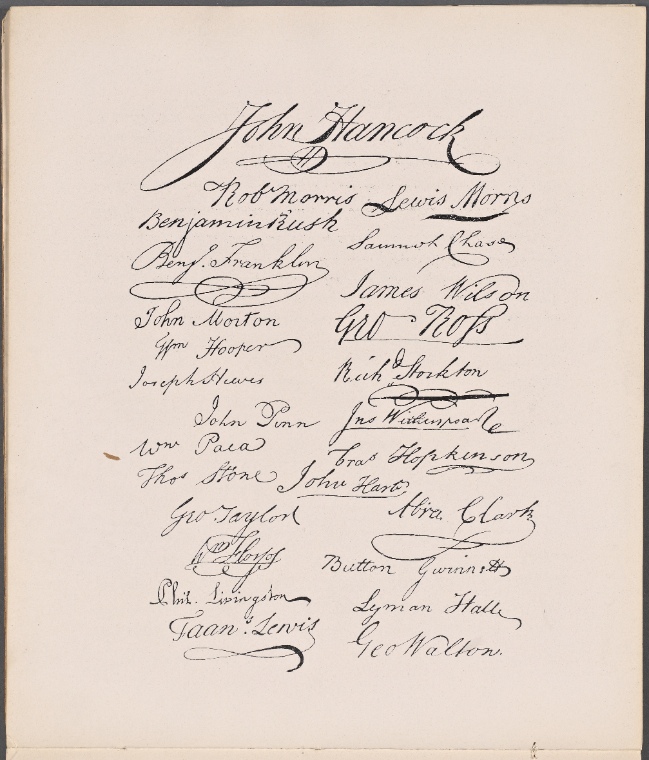 John Hancock
H
Robt Morris Lewis Morris
Benjamin Rush
Samuel Chase
Benj. Franklin
James Wilson
John Morton
Geo Ross
Wm Hooper
Joseph Hewes
Richd Stockton
John Penn
Jno Witherspoon
Wm Paca
Fras Hopkinson
Thos Stone John Hart
Geo Taylor
Abra Clark
Wm Floyd
Button Gwinnett
Phil. Livingston
Lyman Hall
Frans. Lewis
Geo Walton.